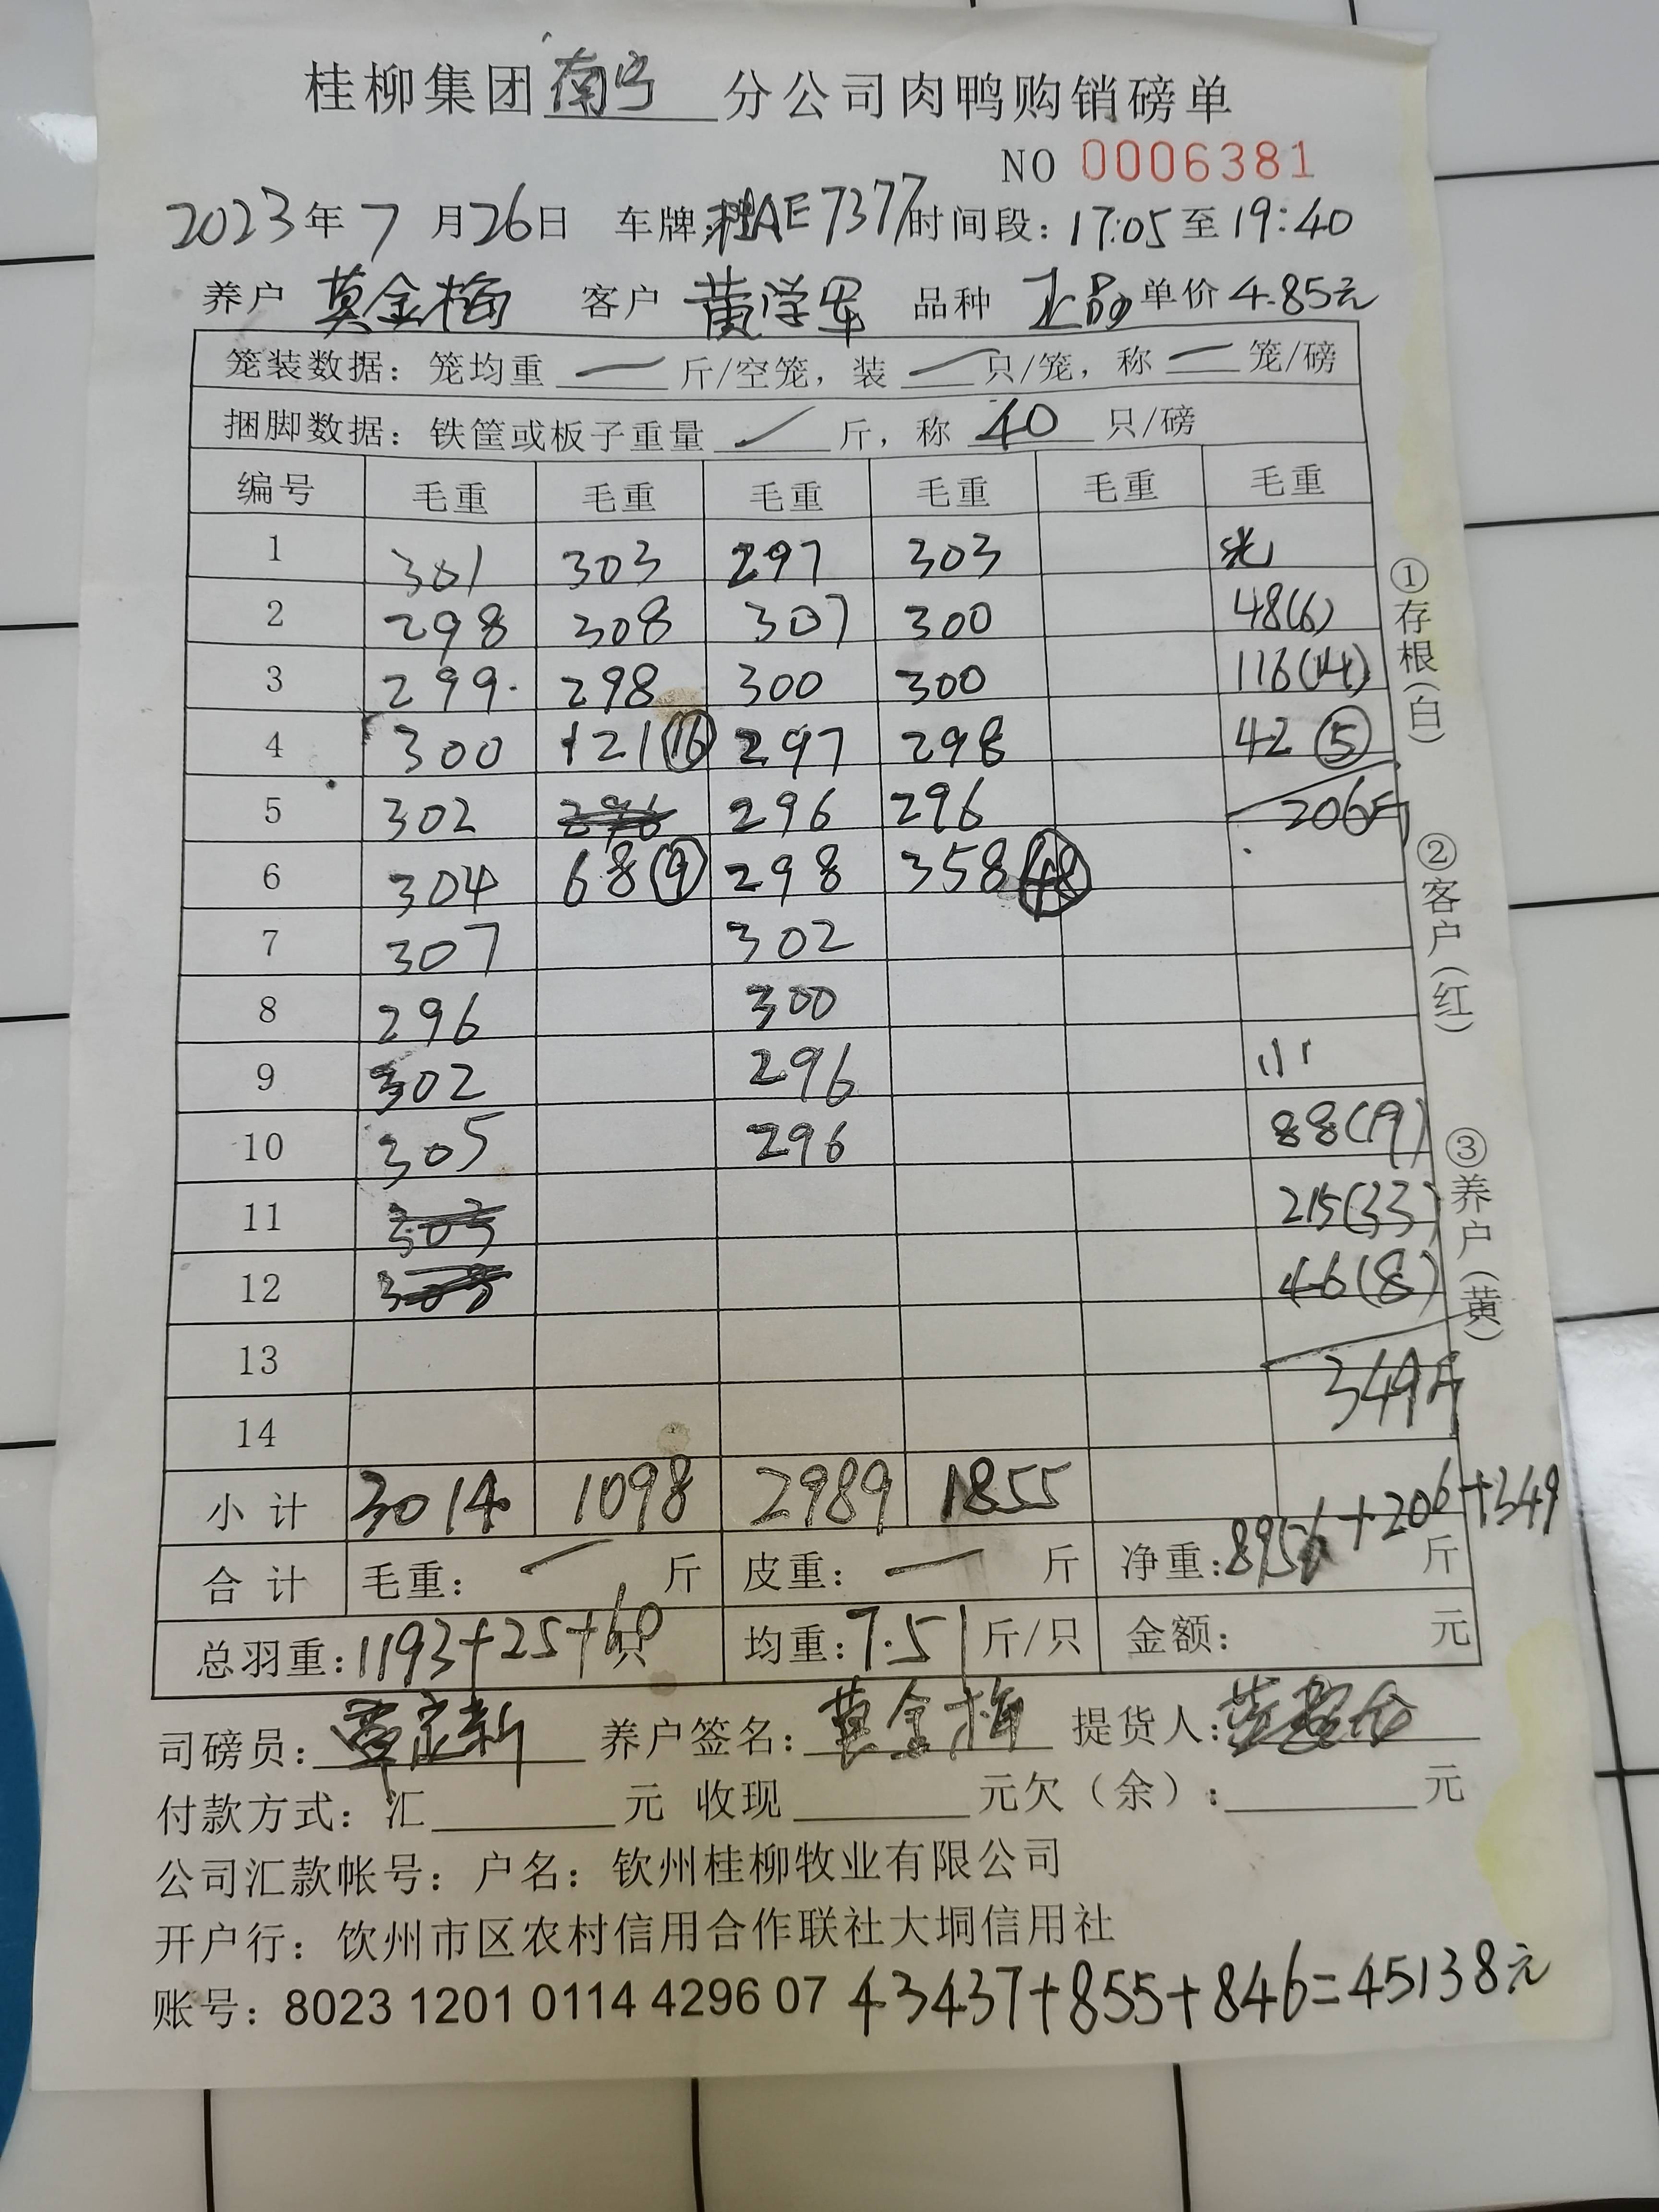 桂柳集团南宁分公司肉鸭购销磅单
NO 0006381
2023年7月26日 车牌:桂AE7377 时间段:17:05至19:40
养户 莫金梅 客户 黄学军 品种 正品 单价 4.85元
笼装数据:笼均重 一 斤/空笼,装 一 只/笼,称 一 笼/磅
捆脚数据:铁筐或板子重量 / 斤,称 40 只/磅
编号 毛重 毛重 毛重 毛重 毛重 毛重
1 301 303 297 303 光
2 298 308 307 300 48(6)
3 299 298 300 300 116(14)
4 300 121(16) 297 298 42(5)
5 302 296 296 296 206斤
6 304 68(9) 298 358(48)
7 307 302
8 296 300
9 302 296 小
10 305 296 88(19)
11 303 215(33)
12 46(8)
13 349斤
14
小计 3014 1098 2989 1855
合计 毛重: 一 斤 皮重: 一 斤 净重:8956+206+349斤
总羽重:1193+25+60只 均重:7.51斤/只 金额: 元
司磅员: 养户签名:莫金梅 提货人:
付款方式:汇 元 收现 元欠(余): 元
公司汇款帐号:户名:钦州桂柳牧业有限公司
开户行:钦州市区农村信用合作联社大垌信用社
账号:8023 1201 0114 4296 07 43437+855+846=45138元
①存根(白)
②客户(红)
③养户(黄)